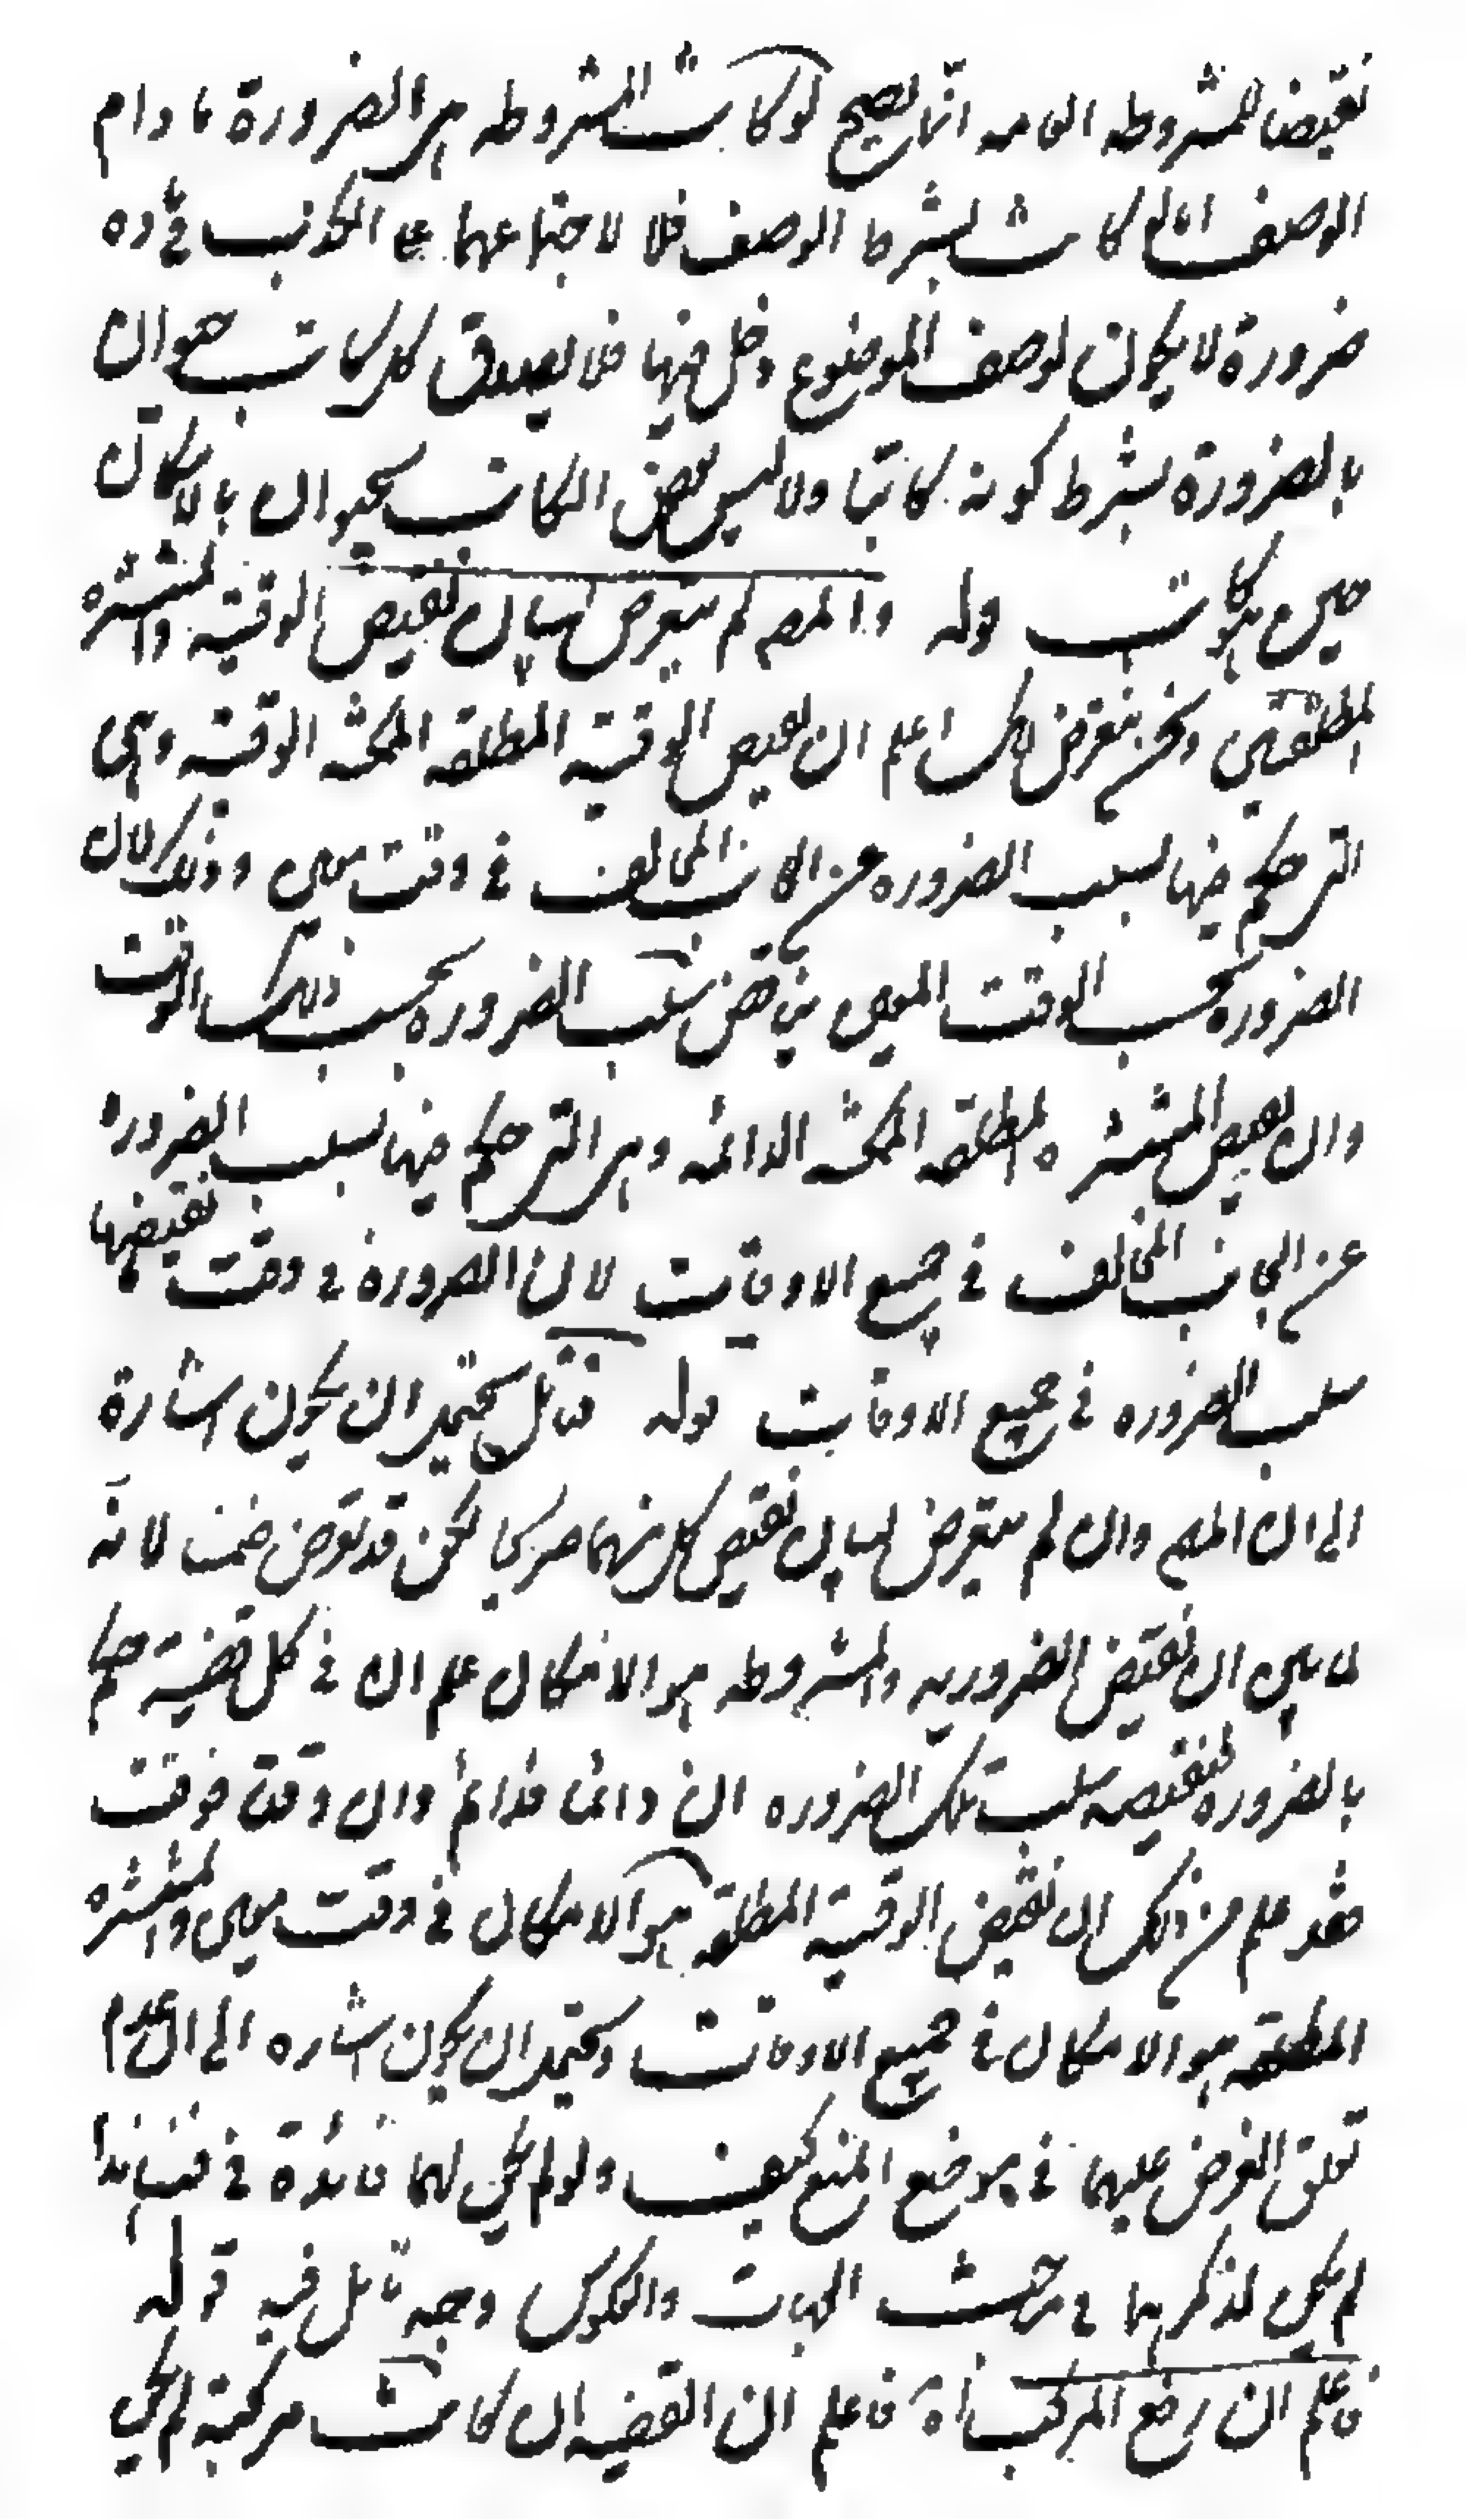 نقيضا للمشروطه العامه انما يصح لو كانت المشروطه هى الضرورة مادام
الوصف اما لو كانت بشرط الوصف فلا لاجتماعهما على الكذب فى مادة
ضرورة لا يكون لوصف الموضوع دخل فيها فلا يصدق كل كاتب حيوان
بالضرورة بشرط كونه كاتبا ولا ليس بعض الكاتب بحيوان بالامكان
حين هو كاتب قوله والمصم لم يتعرض لبيان نقيض الوقتية والمنتشره
المطلقتين ونحن نتعرض لذلك اعلم ان نقيض الوقتية المطلقه الممكنه الوقتيه وهى
التى حكم فيها بسلب الضروره عن الجانب المخالف فى وقت معين وذلك لان
الضروره بحسب الوقت المعين يناقض سلب الضروره بحسب ذلك الوقت
وان نقيض المنتشره المطلقه الممكنه الدائمه وهى التى حكم فيها بسلب الضروره
عن الجانب المخالف فى جميع الاوقات لان الضرورة فى وقت نقيضها
سلب الضروره فى جميع الاوقات قوله فتامل يحتمل ان يكون اشارة
الى ان المصم وان لم يتعرض لبيان نقيض كل منهما صريحا لكن قد تعرض ضمنا لانه
لما بين ان نقيض الضروريه والمشروطه هو الامكان علم ان فى كل قضية حكم
بالضروره فنقيضه سلب تلك الضروره ان دائما فدائما وان وقتا فوقت
فقد علم من ذلك ان نقيض الوقتية المطلقة هو الامكان فى وقت معين والمنتشره
المطلقه هو الامكان فى جميع الاوقات ويحتمل ان يكون اشاره الى ان عدم
تعلق الغرض عليهما فى موضع المنع كيف ولو لم يكن لهما فائدة فى فننا هذا
لم يكن لذكرهما فى مبحث الجهات والعكوس وجه تامل فيه قوله
فاعلم ان رفع المركب اه فاعلم ان القضيه ان كانت مركبة لم يكن